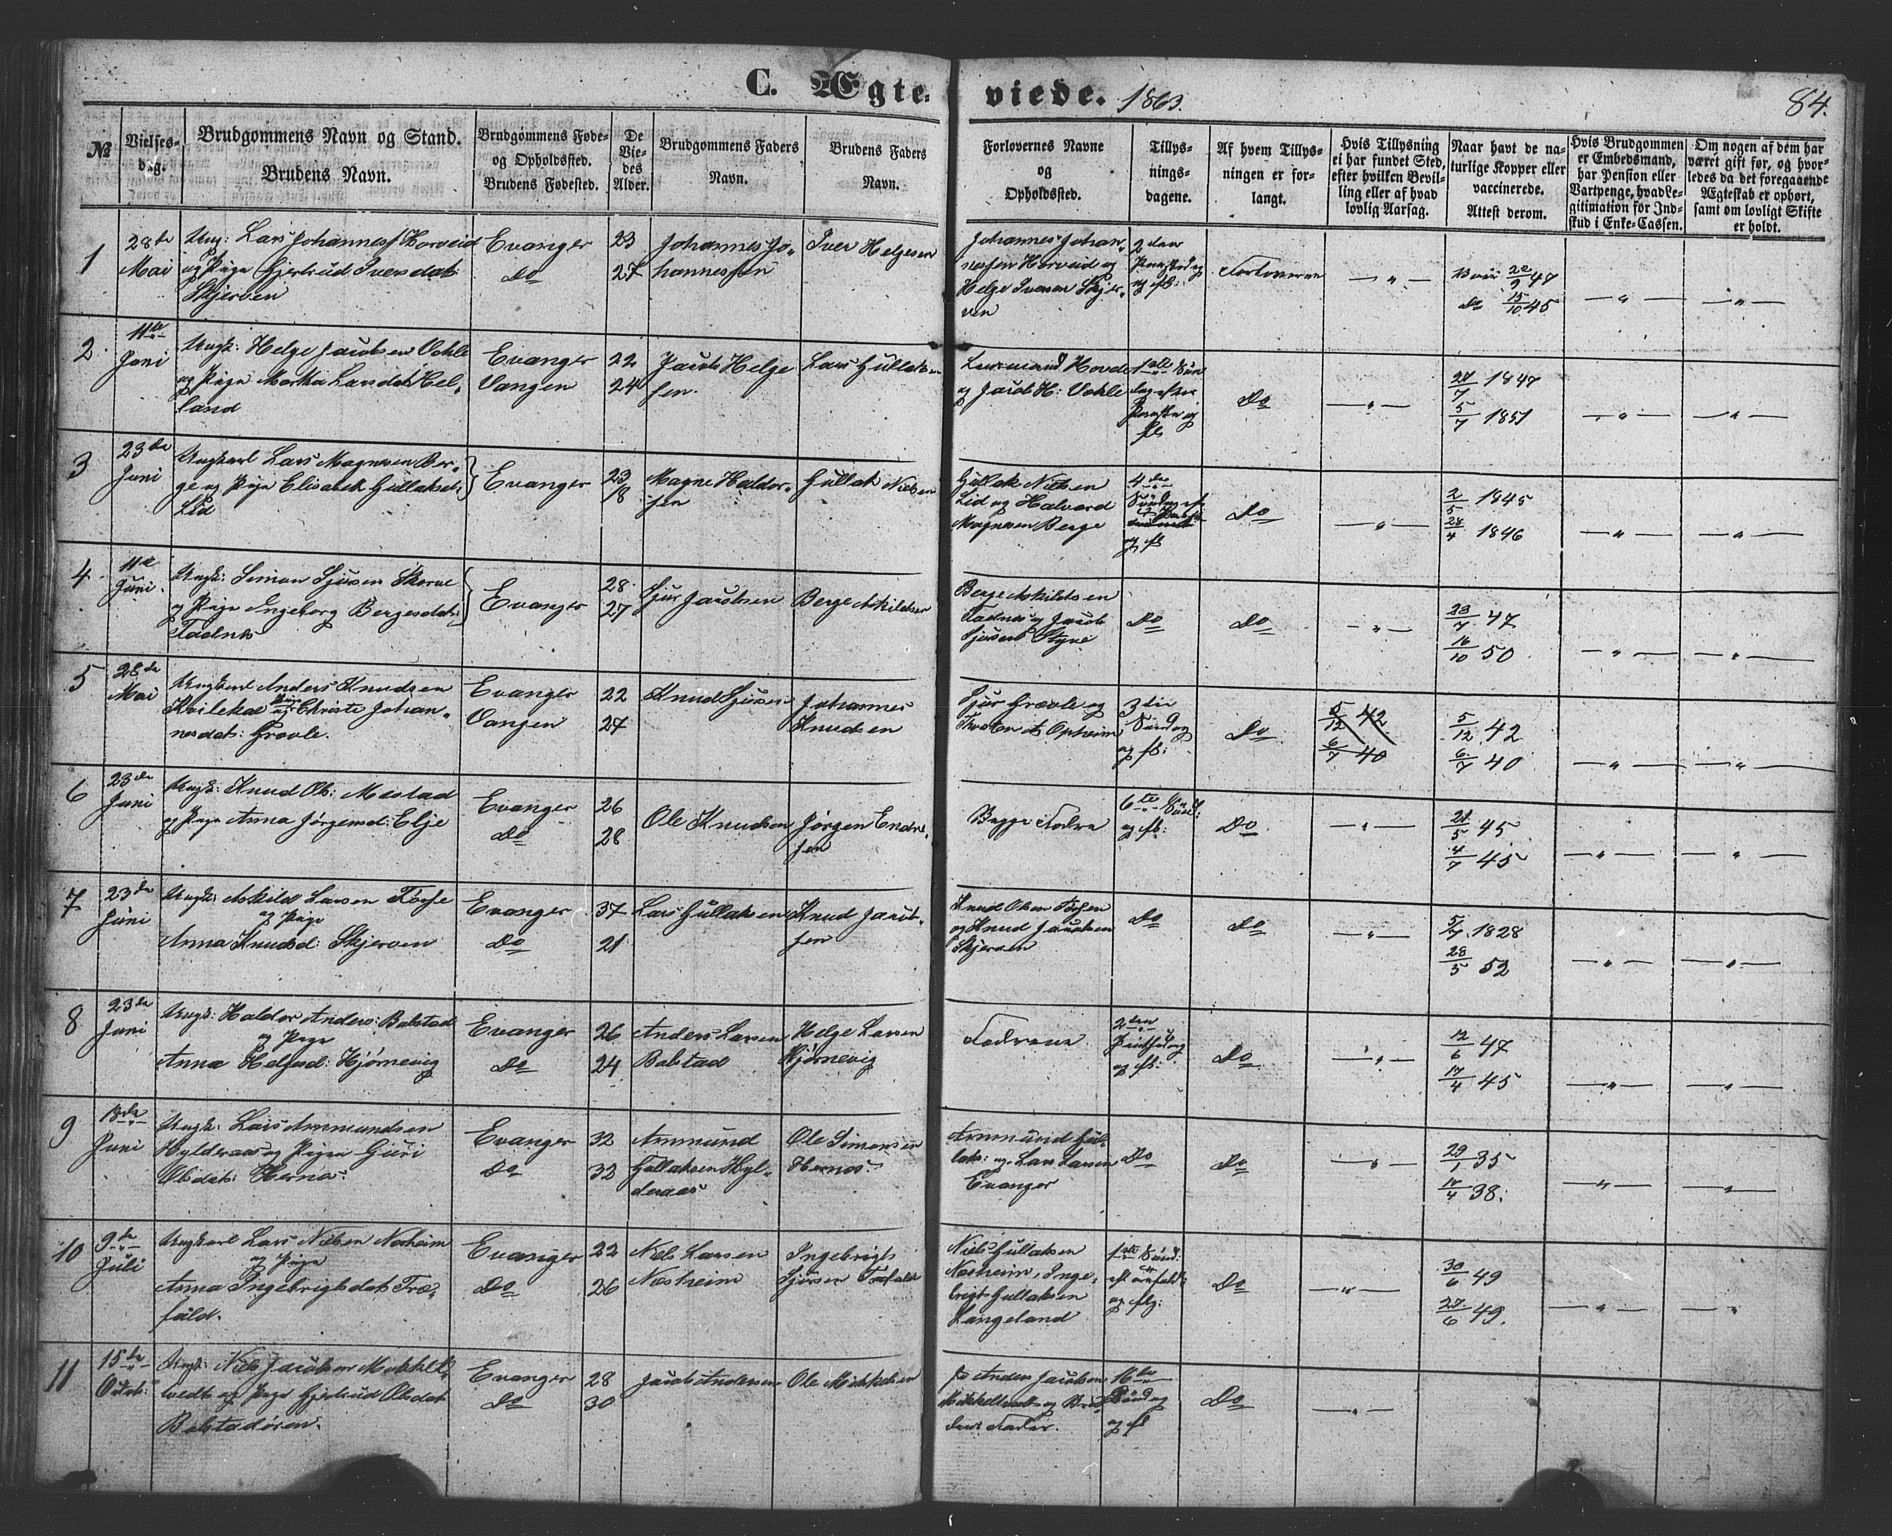 C. Ægteviede. 1863.
84.
№
Vielses-
dag.
Brudgommens Navn og Stand.
Brudens Navn.
Brudgommens Føde-
og Opholdssted.
Brudens Fødested.
De
Vie-
des
Alder.
Brudgommens Faders
Navn.
Brudens Faders
Navn.
Forlovernes Navne
og
Opholdssted.
Tillys-
nings-
dagene.
Af hvem Tillys-
ningen er for-
langt.
Hvis Tillysning
ei har fundet Sted,
efter hvilken Bevil-
ling eller af hvad
lovlig Aarsag.
Naar havt de na-
turlige Kopper eller
vaccinerede.
Attest derom.
Hvis Brudgommen
er Embedsmand,
har Pension eller
Vartpenge, hvad Le-
gitimation for Ind-
skud i Enke-Cassen.
Om nogen af dem har
været gift før, og hvor-
ledes da det foregaaende
Ægteskab er ophørt,
samt om lovligt Skifte
er holdt.
1
28de
Mai
Ungk: Lars Johannesf Horveid
og Pige Gjertrud Iversdat:
Skjerven
Evanger
Do
23
27
Johannes Jo-
hannessen
Iver Helgesen
Johannes Johan-
nessen Horveid og
Helge Iversen Skjer-
ven
2den
og fl:
Forloverne
22/9 47
Do 15/10 45
2
11te
Juni
Ungk: Helge Jacobsen Vohle
og Pige Martha Larsdat: Hel-
land
Evanger
Vangen
22
24
Jacob Helge
sen.
Lars Gullaksen
og Jacob H: Vohle
1ste Søn
dag efter
og
fl:
Do
21/7 1847
5/7 1851
3
23de
Juni
Ungkarl Lars Magnesen Ber-
ge og Pige Elisabeth Gullaksd:
Lid
Evanger
23
18
Magne Haldor-
sen
Gullak Nielsen
Gullak Nielsen
Lid og Halvard
Magnesen Berge
4de
og fl
Do
2/5 1845
28/4 1846
4
11te
Juni.
Ungk: Simon Sjursen Skorve
og Pige Ingeborg Bergesdat:
Fadnes
Evanger
28.
27
Sjur Jacobsen
Berge Askildsen
Berge Askildsen
Fadnes og Jacob
Sjursen Styve
Do
Do
23/7 47
16/10 50
5
28de
Mai
Ungkarl Anders Knudsen
Kvilekal og Pige Christi Johan-
nesdat: Grovle.
Evanger
Vangen
22
27
Knud Sjursen
Johannes
Knudsen
Sjur Grovle og
Opheim
3die
Søndag
og fl:
Do
5/12 42
6/7 40
5/12 42
6/7 40
6
23de
Juni
Ungk: Knud Ols: Mestad
og Pige Anna Jørgensd: Elje
Evanger
Do
26
28
Ole Knudsen
Jørgen Endre-
sen
Begge Fædre
6te Sønd:
og fl:
Do
21/5 45
4/7 45
7
23de
Juni
Ungk: Askild Larsen Fosse
og Pige
Anna Knudsd: Skjerven
Evanger
Do
37
21
Lars Gullaksen
Knud Jacob-
sen
Knud Olsen
og Knud Jacobsen
Skjerven
Do
Do
5/7 1828
28/5 52
8
23de
Juni
Ungk: Haldor Anders: Bolstad
og Pige
Anna Helgesd: Hjørnevig
Evanger
Do
26
24
Anders Larsen
Bolstad
Helge Larsen
Hjørnevig
Fædrene
2den
og fl:
Do
12/6 47
17/4 45
9
18de
Juni
Ungk: Lars Ammundsen
Hylderaas og Pigen Guri
Olsdat: Hernæs.
Evanger
Do
32
32
Ammund
Gullaksen Hyl-
deraas
Ole Simonsen
Hernæs.
Ammund Gul-
laks: og Lars Larsen
Evanger
Do
Do
29/1 35
38.
10
9de
Juli
Ungkarl Lars Nielsen Nesheim
og Pige
Anna Ingebrigtsdat: Træ-
fald.
Evanger
Do
22
26
Niels Larsen
Nesheim
Ingebrigt
Sjursen Træfald
Niels Gullaksen
Nesheim, Inge-
brigt Gullaksen
Langeland
1ste Sønd:
og flg:
Do
30/6 49
27/6 49.
11
15de
Octob:
Ungk: Niels Jacobsen Mikkelt-
vedt og Pige Gjertrud Olsdat
Bolstadøren.
Evanger
Do
28
30
Jacob Andersen
Ole Mikkelsen
Anders Jacobsen
Mikkeltvedt og Bru-
dens Fader.
16de
Søndag
og fl
Do